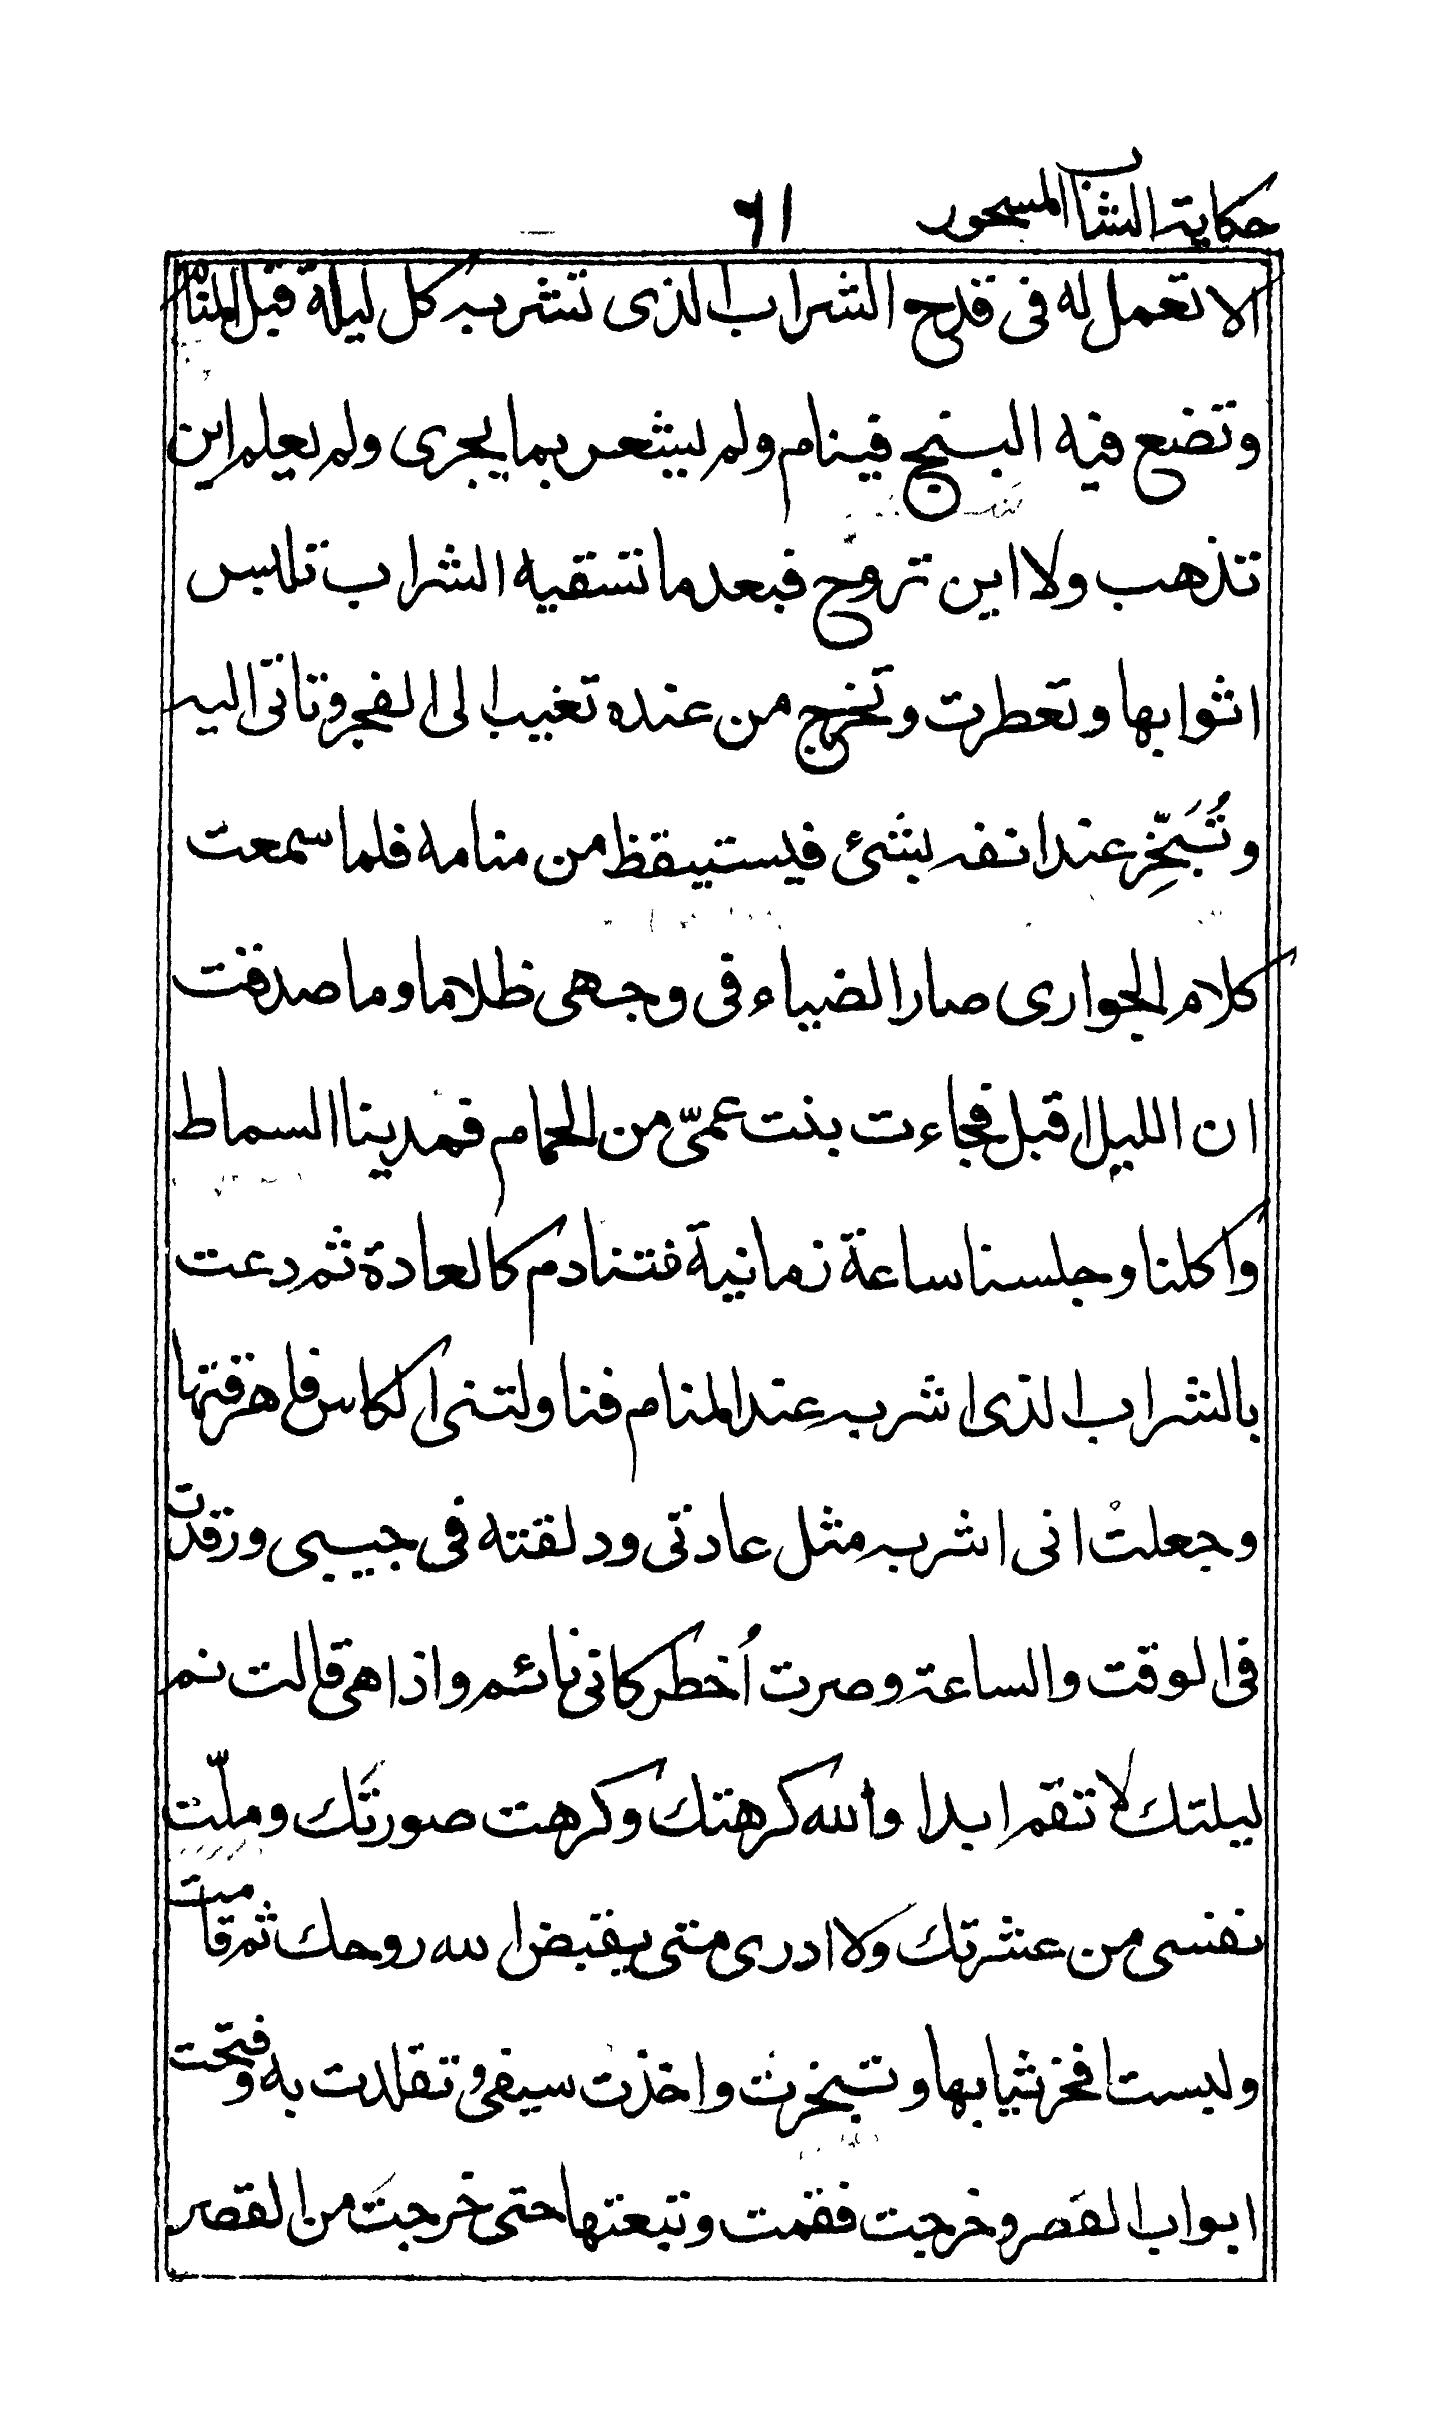 حكاية الشاب المسحور ٦١
الا تعمل له فى قدح الشراب الذى تشربه كل ليلة قبل المنام
وتضع فيه البنج فينام ولم يشعر بما يجرى ولم يعلم اين
تذهب ولا اين تروح فبعد ما تسقيه الشراب تلبس
اثوابها وتعطرت وتخرج من عنده تغيب الى الفجر وتاتى اليه
وتُبَخِّر عند انفه بشئ فيستيقظ من منامه فلما سمعت
كلام الجوارى صار الضياء فى وجهى ظلاما وما صدقت
ان الليل اقبل فجاءت بنت عمىّ من الحمام فمدينا السماط
واكلنا وجلسنا ساعة زمانية فتنادم كالعادة ثم دعت
بالشراب الذى اشربه عند المنام فناولتنى الكاس فاهرقتها
وجعلت انى اشربه مثل عادتى ودلقته فى جيبى ورقدت
فى الوقت والساعة وصرت اُخطر كانى نائم واذا هى قالت نم
ليلتك لا تقم ابدا والله كرهتك وكرهت صورتك وملّت
نفسى من عشرتك ولا ادرى متى يقبض الله روحك ثم قامت
ولبست افخر ثيابها وتبخرت واخذت سيفى وتقلدت به وفتحت
ابواب القصر وخرجت فقمت وتبعتها حتى خرجت من القصر